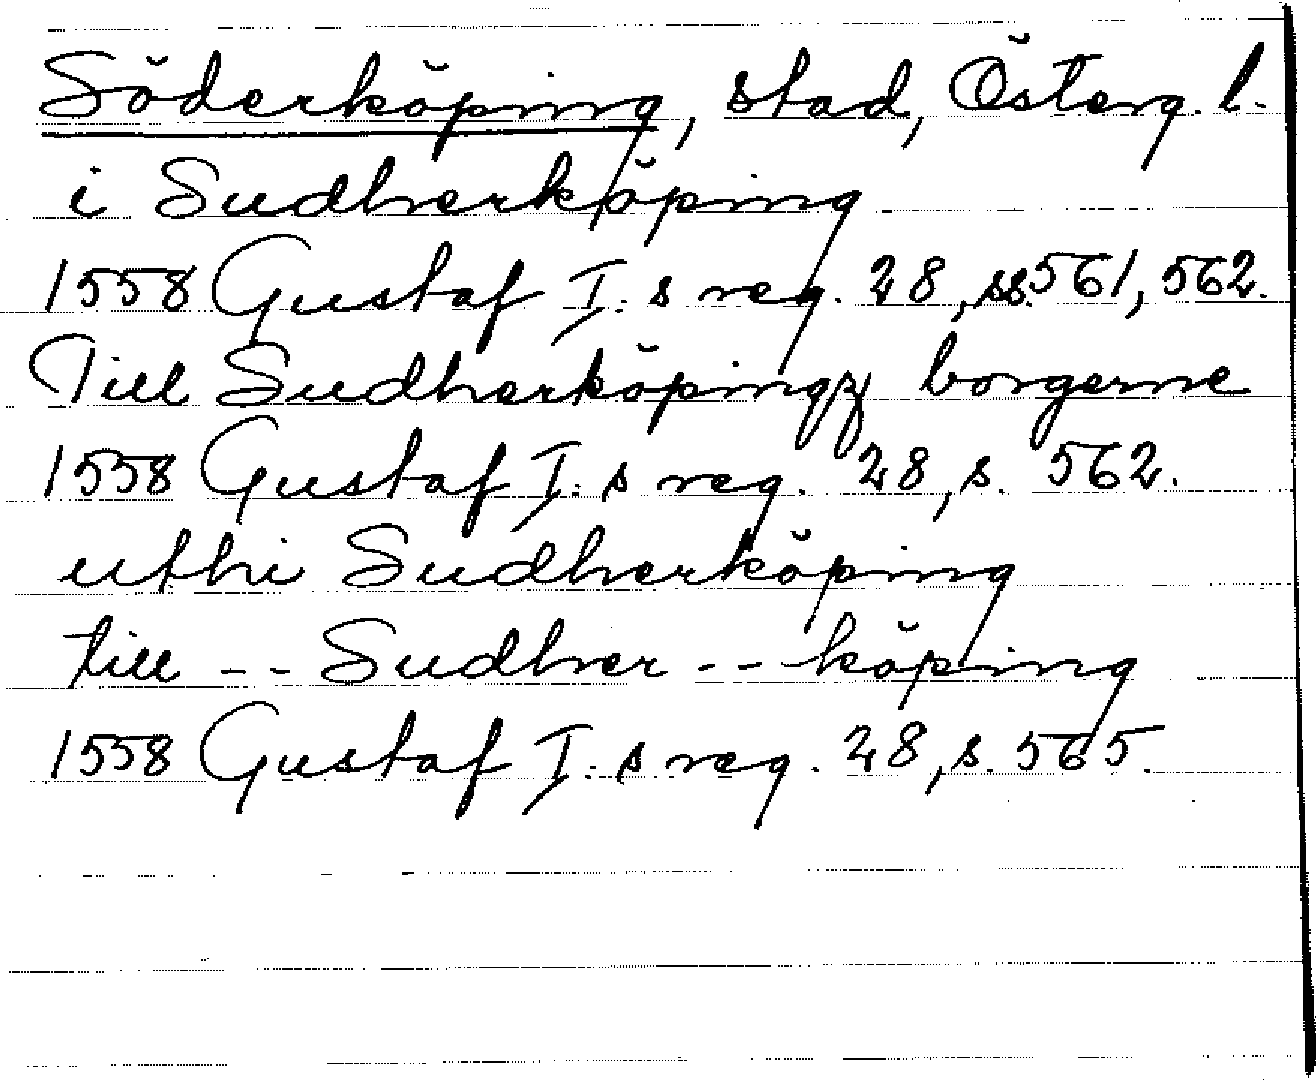 Söderköping, stad, Österg. l.
i Sudherköping
1558 Gustaf I:s reg. 28, ss. 561, 562.
Till Sudherköpingz borgerne
1558 Gustaf I:s reg. 28, s. 562.
uthi Sudherköping
till -- Sudher -- köping
1558 Gustaf I:s reg. 28, s. 565.